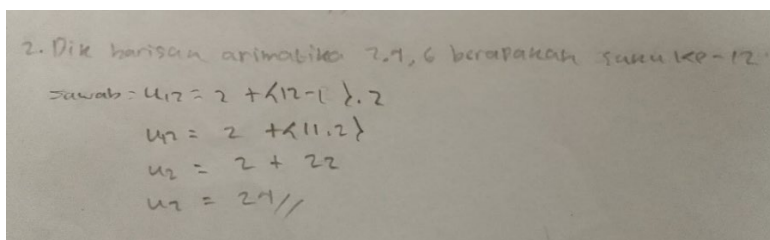 2. Dik barisan arimatika 2,4,6 berapakah suku ke-12
Jawab = U12 = 2 + {12-1}.2
U12 = 2 + {11.2}
U2 = 2 + 22
U2 = 24//